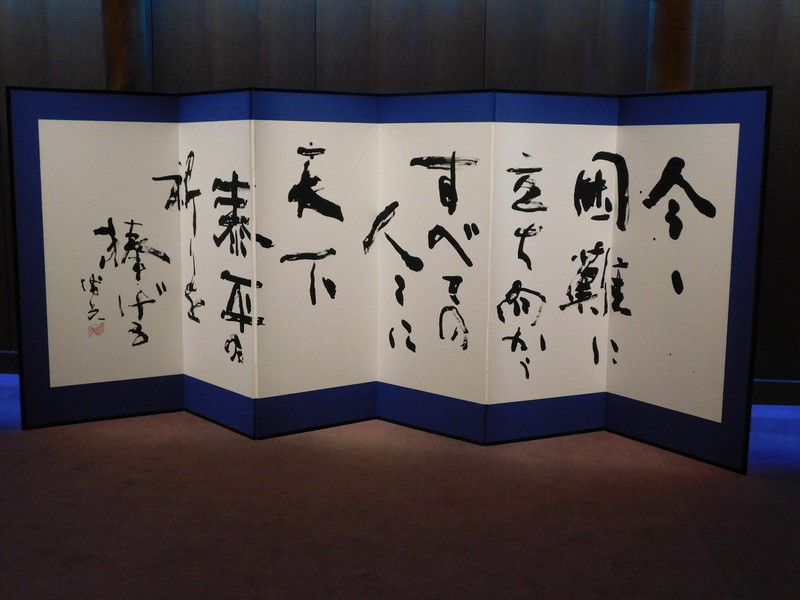 今、
困難に
立ち向かう
すべての
人々に
天下
泰平の
祈りを
捧げる